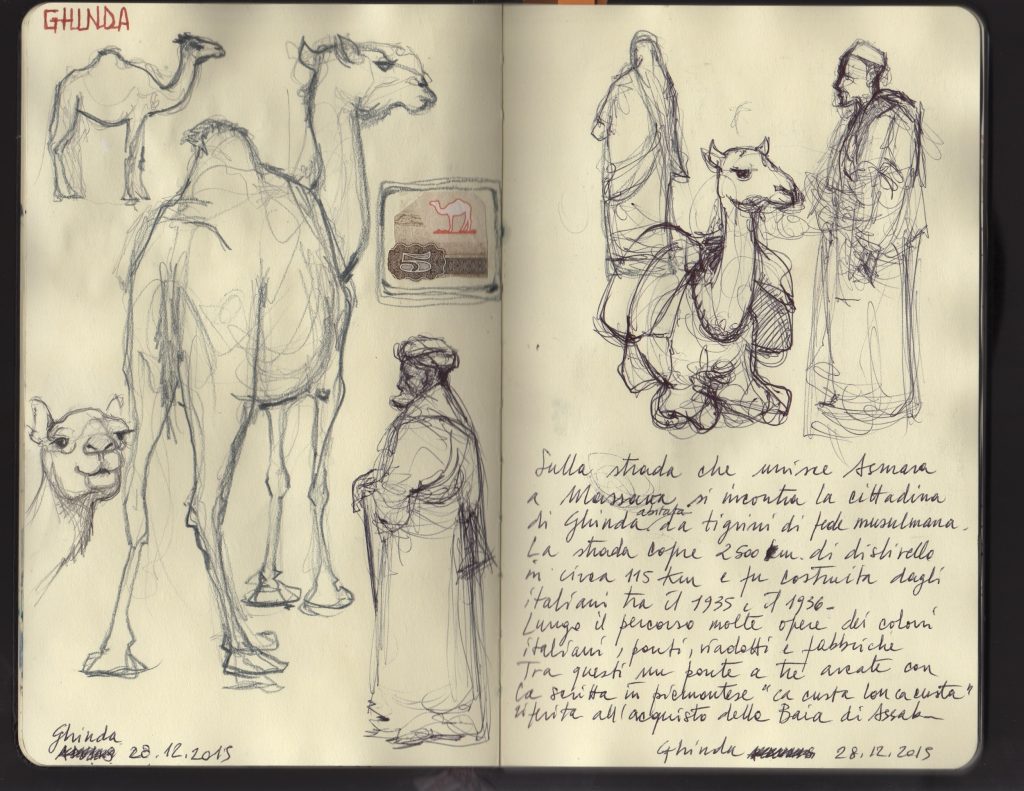 GHINDA
5
Ghinda
28.12.2015
Sulla strada che unisce Asmara
a Massaua, si incontra la cittadina
di Ghinda abitata da tigrini di fede musulmana.
La strada copre 2500 m. di dislivello
in circa 115 km e fu costruita dagli
italiani tra il 1935 e il 1936-
Lungo il percorso molte opere dei coloni
italiani, ponti, viadotti e fabbriche
Tra questi un ponte a tre arcate con
la scritta in piemontese "ca custa lon ca custa"
riferita all'acquisto della Baia di Assab-
Ghinda 28.12.2015